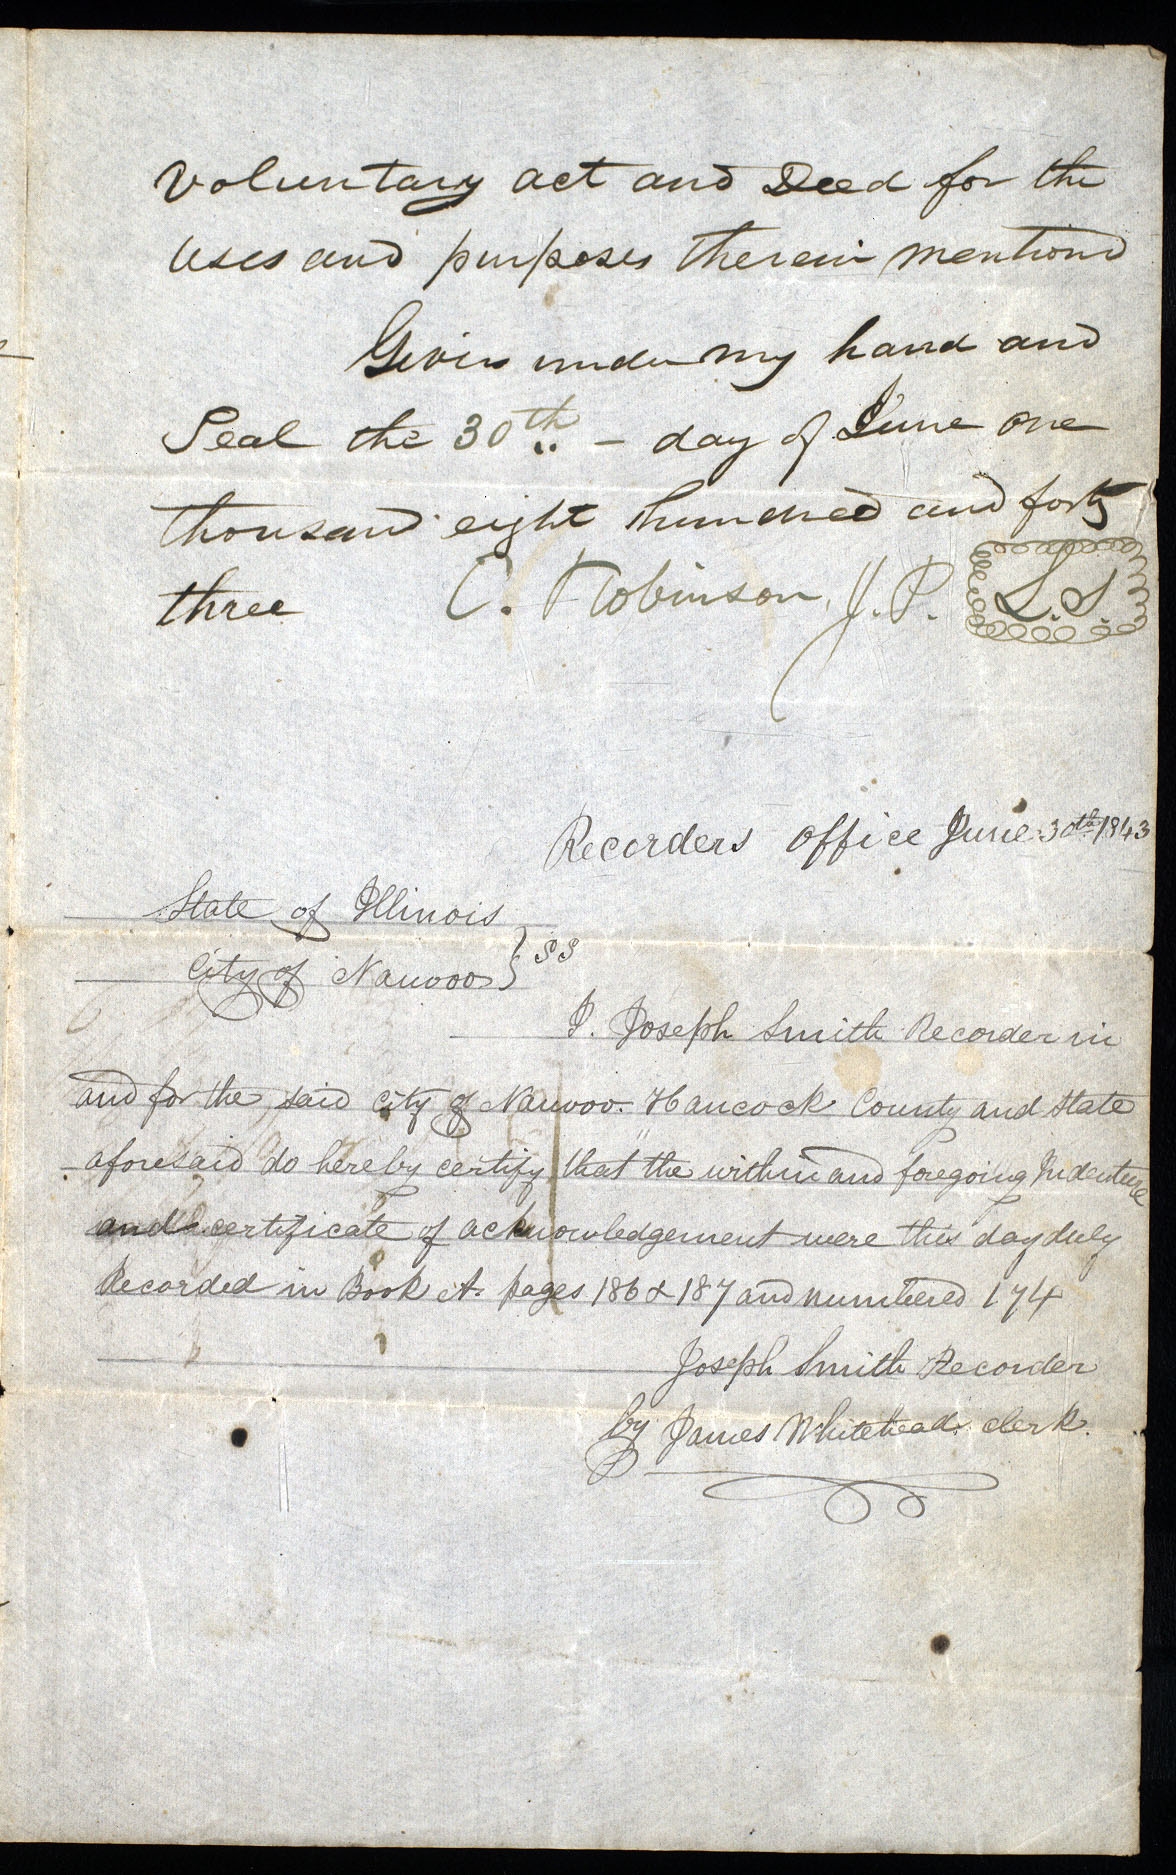 voluntary act and Deed for the
uses and purposes therein mentiond
Given under my hand and
Seal the 30th - day of June one
thousand eight hundred and forty
three E. Robinson, J.P. L.S.
Recorders office June 30th 1843
State of Illinois
City of Nauvoo } SS
I. Joseph Smith Recorder in
and for the said City of Nauvoo. Hancock County and State
aforesaid do hereby certify that the within and foregoing Indenture
and certificate of acknowledgement were this day duly
Recorded in Book A. pages 186 & 187 and numbered 174
Joseph Smith Recorder
by James Whitehead. clerk.